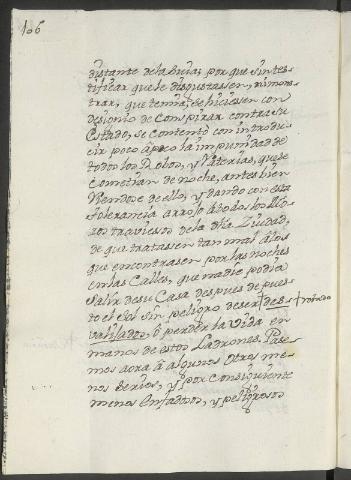 106
distante de la suia; por que sin tes-
tificar que le disgustassen, ni mons-
trar, que temia, se hiciessen con
designio de Conspirar contra su
Estado, se contentó con introdu-
cir poco á poco la impunidad de
todos los Robos, y Raterias, que se
cometian de noche, antes bien
riendose de ello, y dando con esta
tolerancia arrojo á todos los Mo-
zos traviesos de la dha Ziudad,
de que tratassen tan mal á los
que encontrasen por las noches
en las Calles, que nadie podia
salir de su Casa despues de pues-
to el Sol sin peligro de ser des-
valijados, ó perder la Vida en
manos de estos Ladrones. Pase-
mos aora á algunos otros me-
nos serios, y por consiguiente
menos enfadosos, y peligrosos